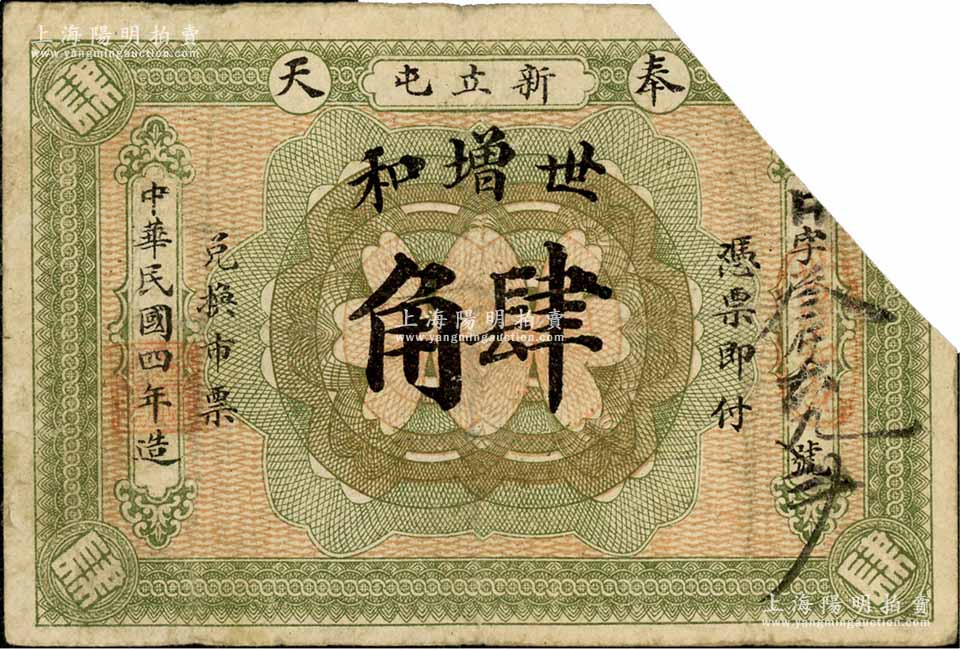 上海陽明拍賣
www.yangmingauction.com
奉天
新立屯
世增和
肆角
憑票即付
兌換市票
日字
號
中華民國四年造
肆
肆
肆
上海陽明拍賣
www.yangmingauction.com
上海陽明拍賣
www.yangmingauction.com